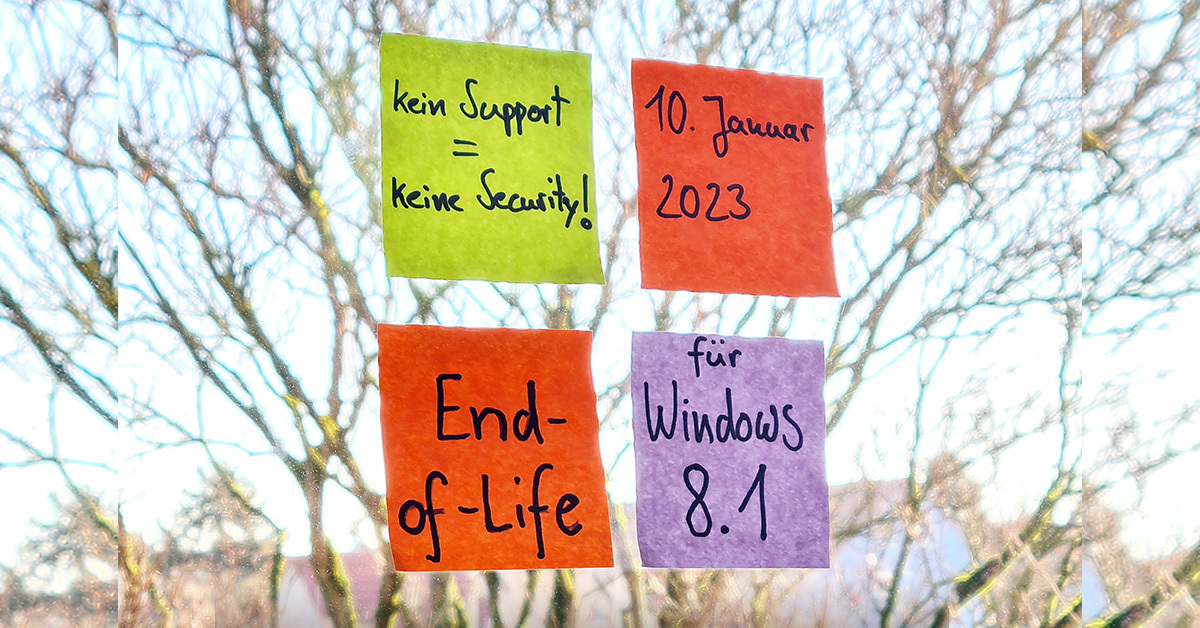 kein Support
=
keine Security!
10. Januar
2023
End-
of-Life
für
Windows
8.1